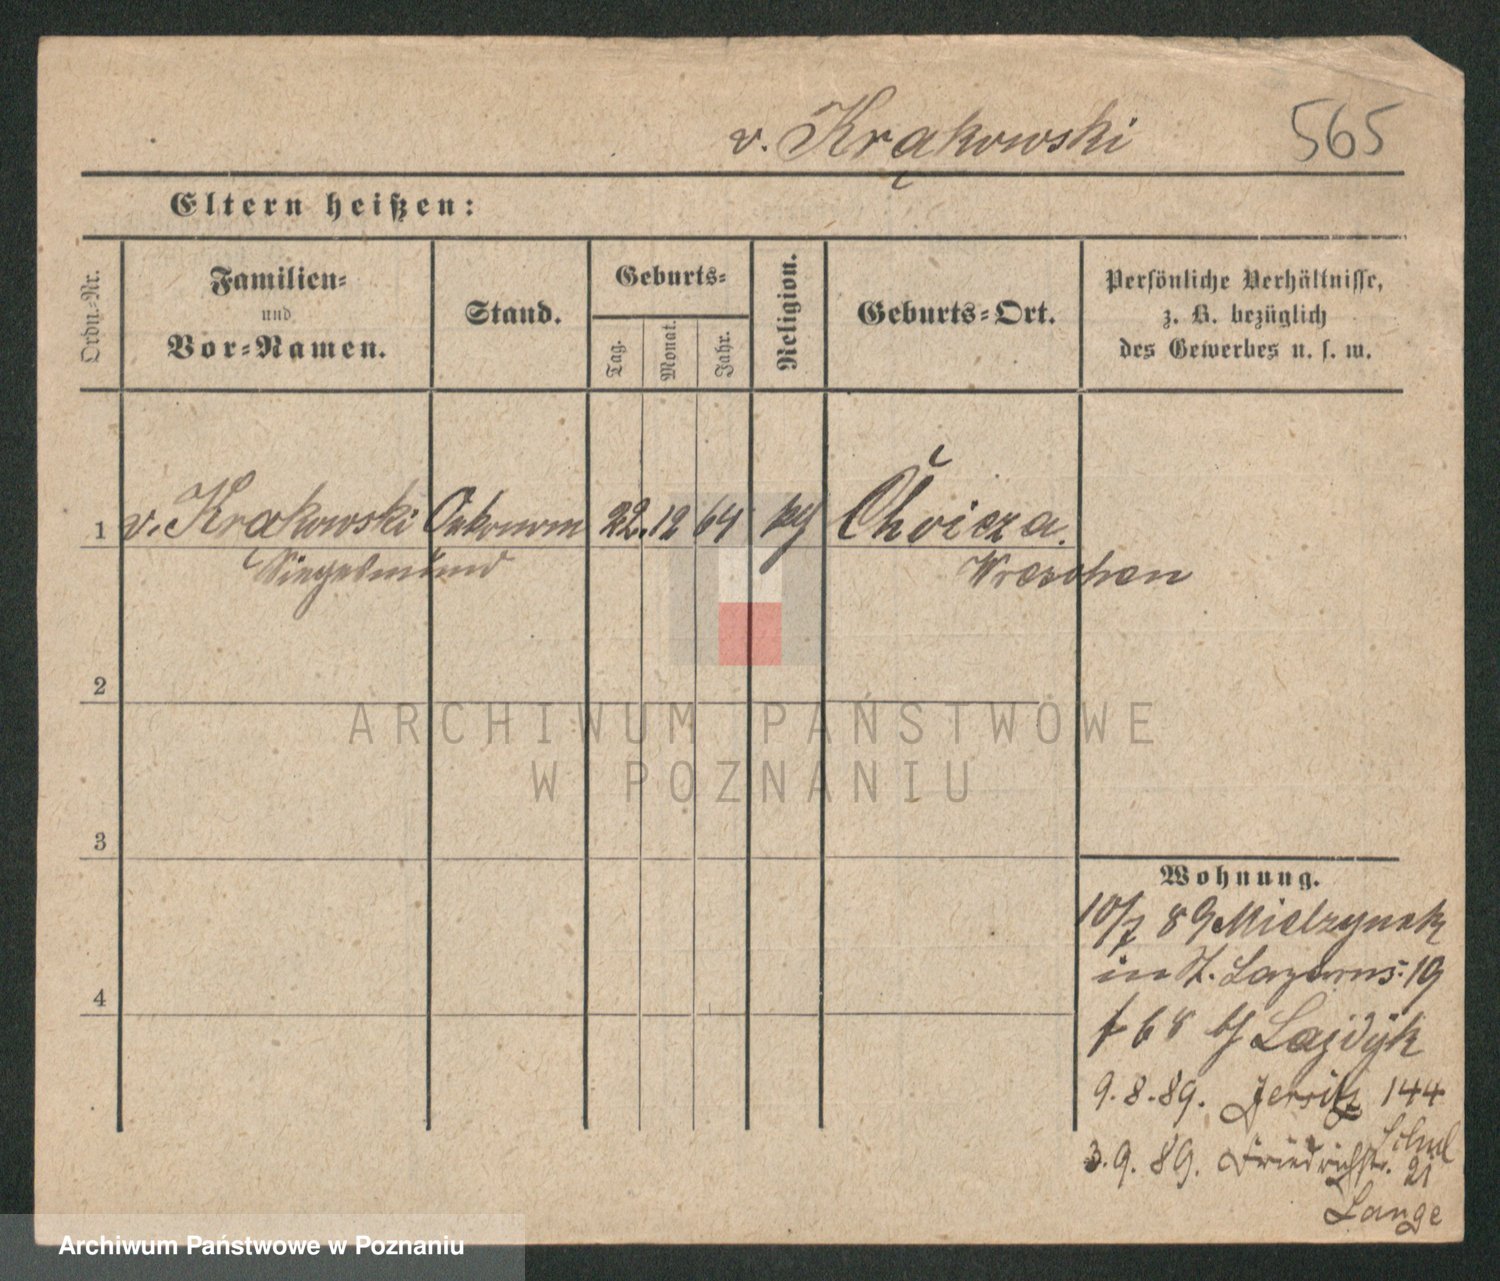 v. Krąkowski 565
Eltern heißen:
Ordn.-Nr.
Familien-
und
Vor-Namen.
Stand.
Geburts-
Tag.
Monat.
Jahr.
Religion.
Geburts-Ort.
Persönliche Verhältnisse,
z. B. bezüglich
des Gewerbes u. s. w.
1 v. Krakowski Oekonom 22. 12 64 Chwicza.
Siegesmund Wreschen
2
3
4
ARCHIWUM PAŃSTWOWE
W POZNANIU
Wohnung.
10/7 89 Mielzynek
in St. Lazarus 19
68 Lajdyk
9.8.89. Jersitz 144
3.9.89. Friedrichstr. 21
Lange
Archiwum Państwowe w Poznaniu